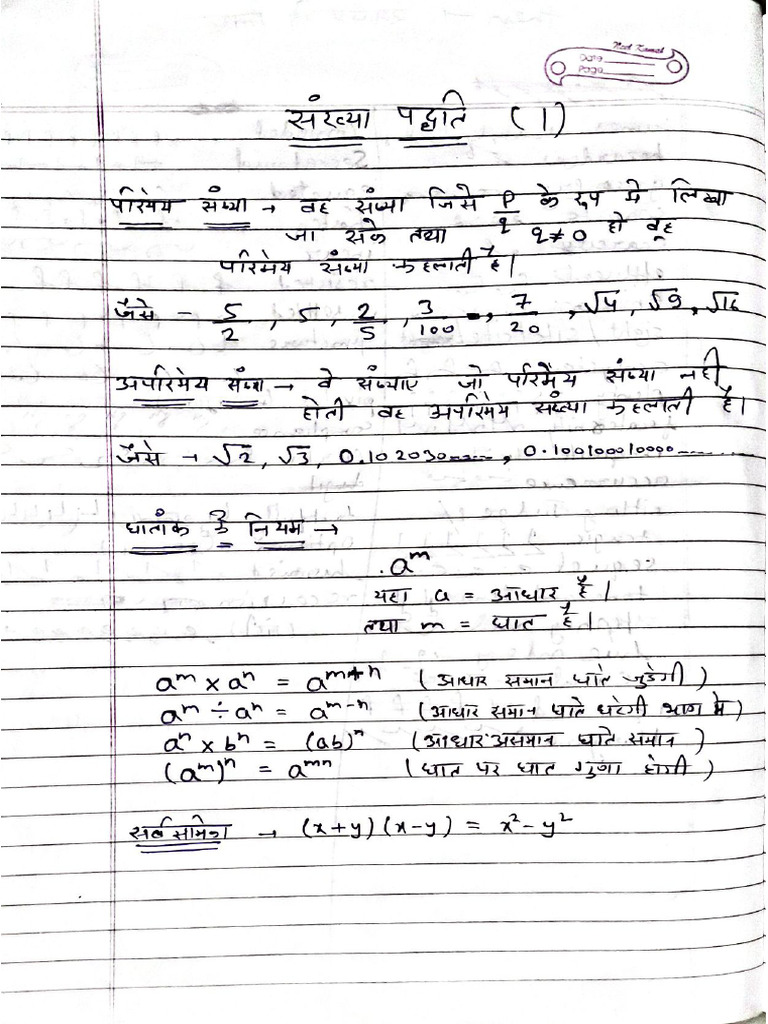 Neel Kamal
Date
Page
संख्या पद्धति (1)
परिमेय संख्या → वह संख्या जिसे P/q के रूप मे लिखा
जा सके तथा q≠0 हो वह
परिमेय संख्या कहलाती है।
जैसे - 5/2, 5, 2/5, 3/100, 7/20, √4, √9, √16
अपरिमेय संख्या → वे संख्याए जो परिमेय संख्या नही
होती वह अपरिमेय संख्या कहलाती है।
जैसे → √2, √3, 0.102030......, 0.100100010000........
घातांक के नियम →
a^m
यहा a = आधार है।
तथा m = घात है।
a^m × a^n = a^(m+n) (आधार समान घाते जुडेगी)
a^m ÷ a^n = a^(m-n) (आधार समान घाते घटेगी भाग मे)
a^n × b^n = (ab)^n (आधार असमान घाते समान)
(a^m)^n = a^(mn) (घात पर घात गुणा होगी)
→ (x+y)(x-y) = x² - y²